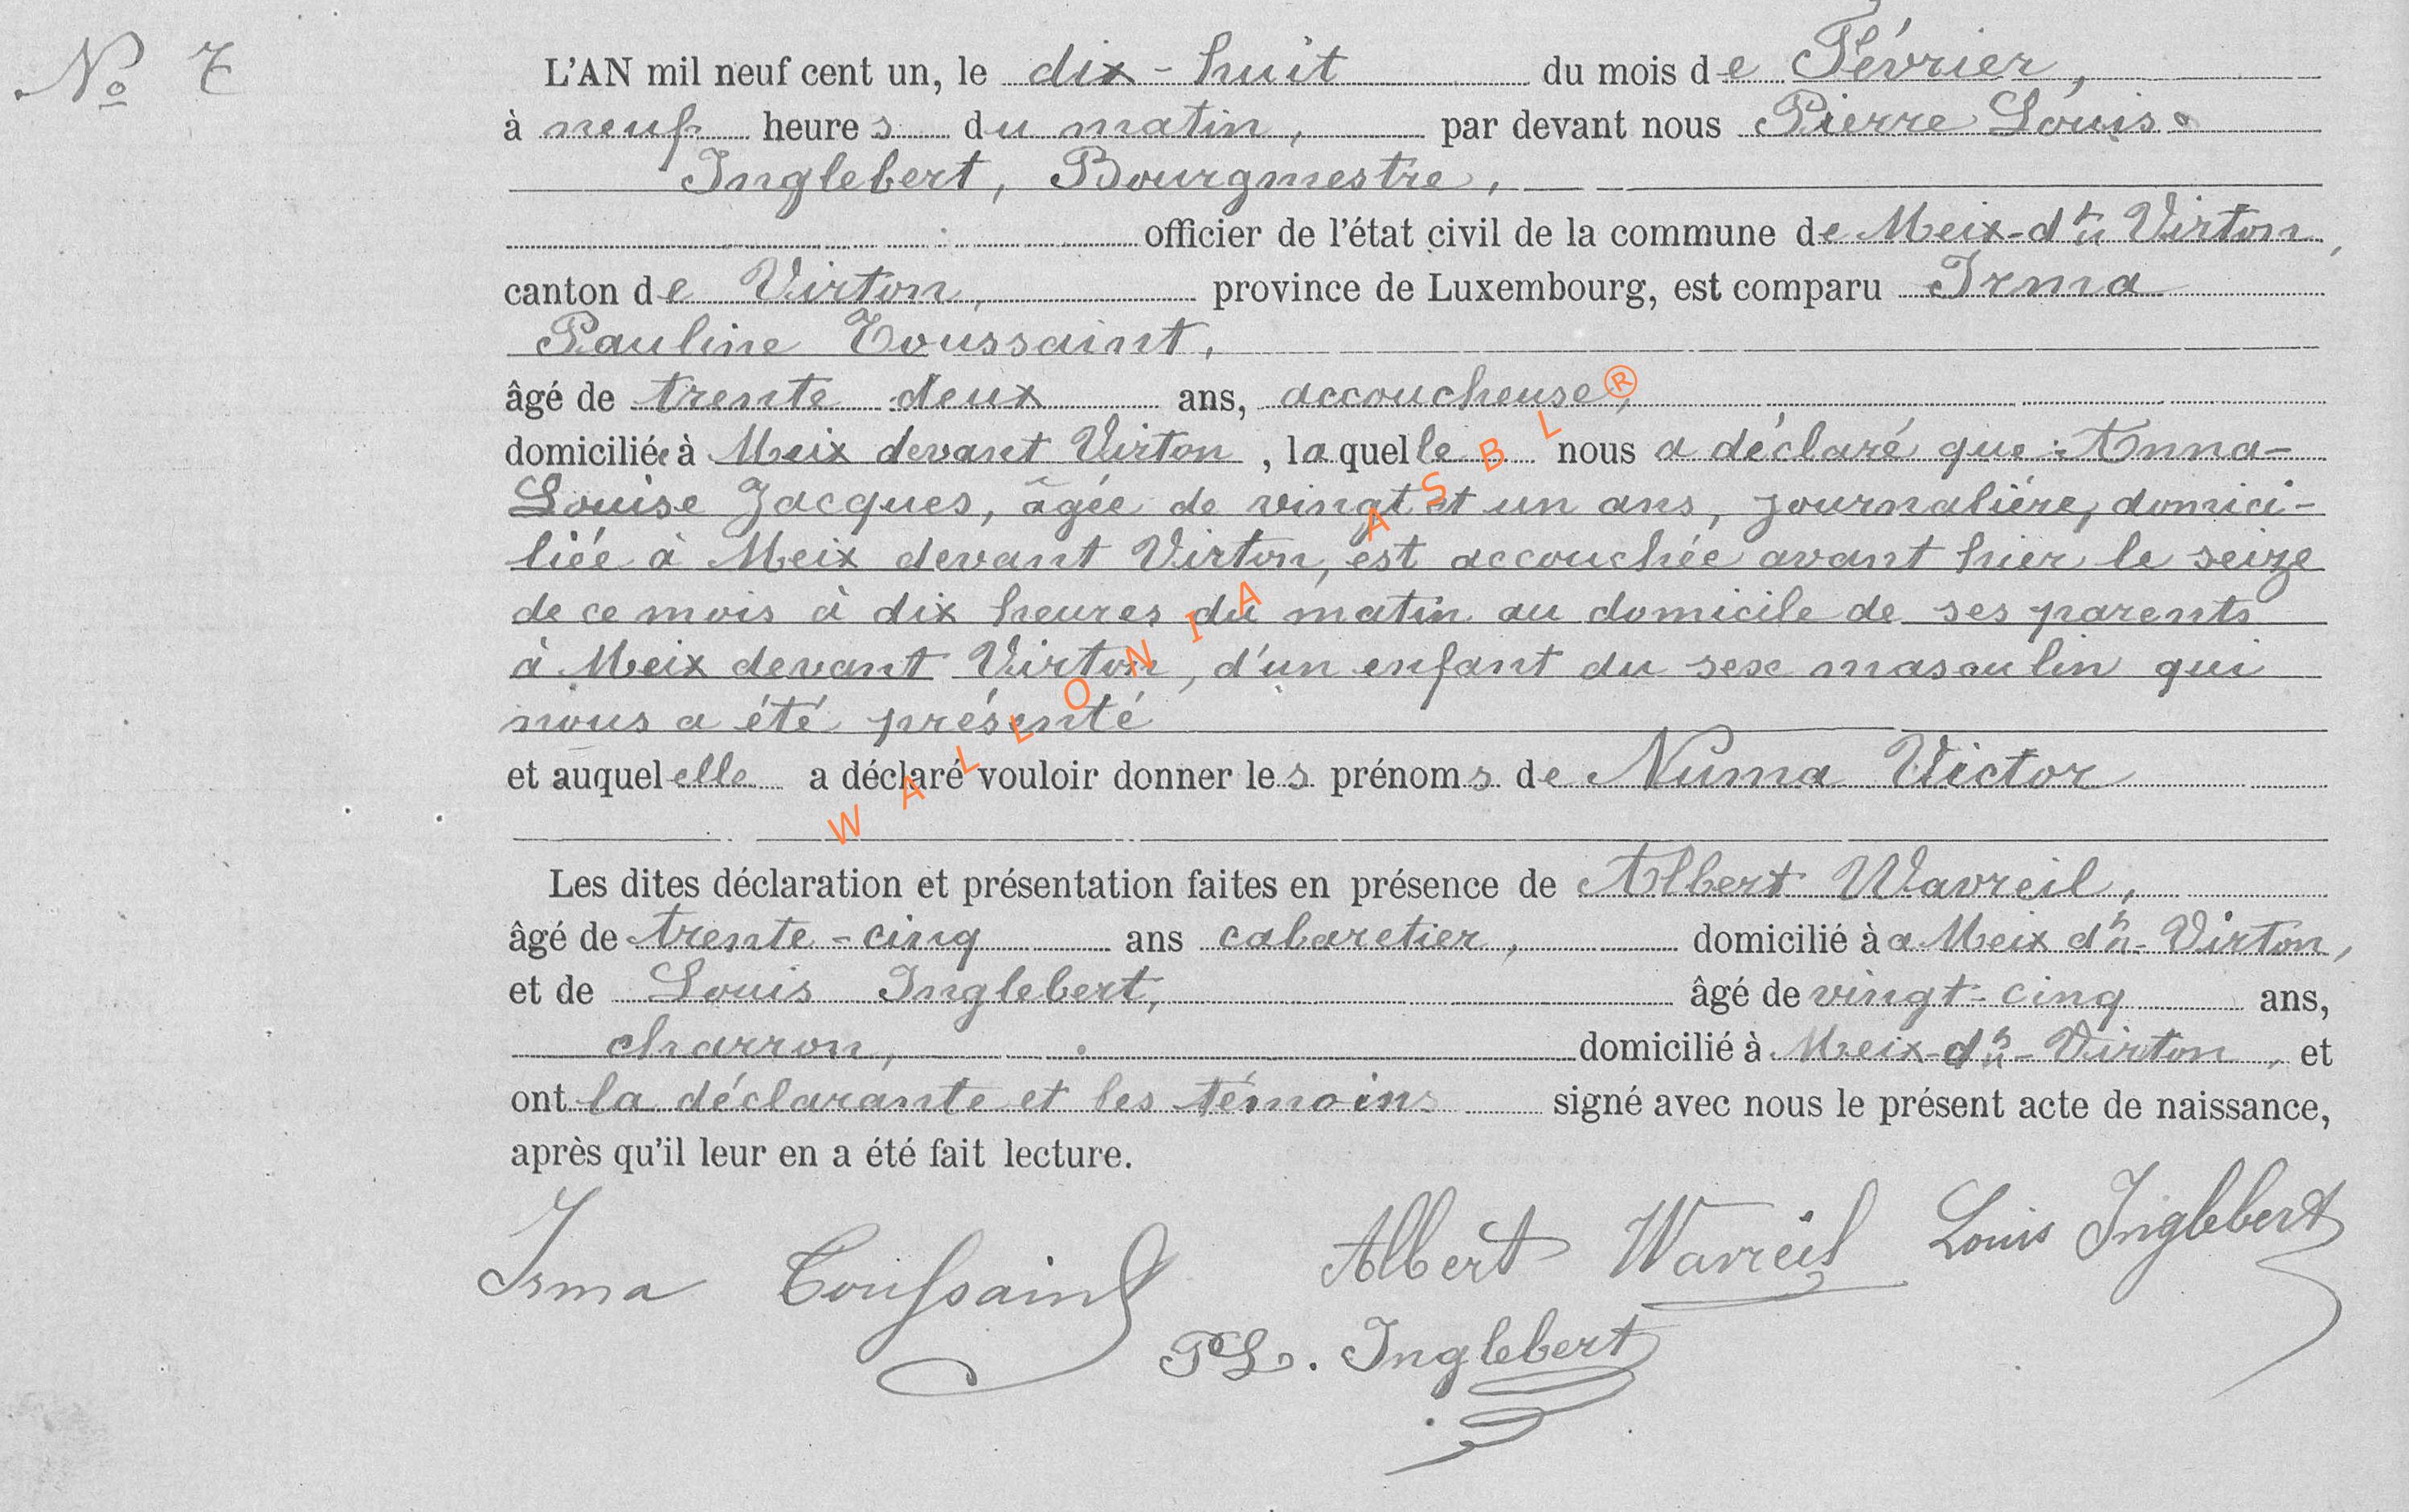 No 7
L'AN mil neuf cent un, le dix-huit du mois de Février,
à neuf heures du matin, par devant nous Pierre Louis
Inglebert, Bourgmestre,
officier de l'état civil de la commune de Meix-dt Virton,
canton de Virton, province de Luxembourg, est comparu Irma
Pauline Toussaint,
âgé de trente deux ans, accoucheuse,
domiciliée à Meix devant Virton, laquelle nous a déclaré que Anna-
Louise Jacques, âgée de vingt et un ans, journalière, domici-
liée à Meix devant Virton, est accouchée avant hier le seize
de ce mois à dix heures du matin au domicile de ses parents
à Meix devant Virton, d'un enfant du sexe masculin qui
nous a été présenté
et auquel elle a déclaré vouloir donner les prénoms de Numa Victor
Les dites déclaration et présentation faites en présence de Albert Wavreil,
âgé de trente-cinq ans cabaretier, domicilié à a Meix dt-Virton,
et de Louis Inglebert, âgé de vingt-cinq ans,
charron, domicilié à Meix-dt-Virton, et
ont la déclarante et les témoins signé avec nous le présent acte de naissance,
après qu'il leur en a été fait lecture.
Irma Toussaint Albert Wavreil Louis Inglebert
PL. Inglebert
WALLONIA ASBL ®